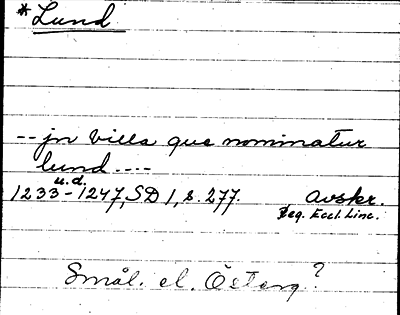 *Lund
-- jn villa que nominatur
lund ----
u.d.
1233-1247, SD 1, s. 277. avskr.
Reg. Eccl. Linc.
Smål. el. Österg.?